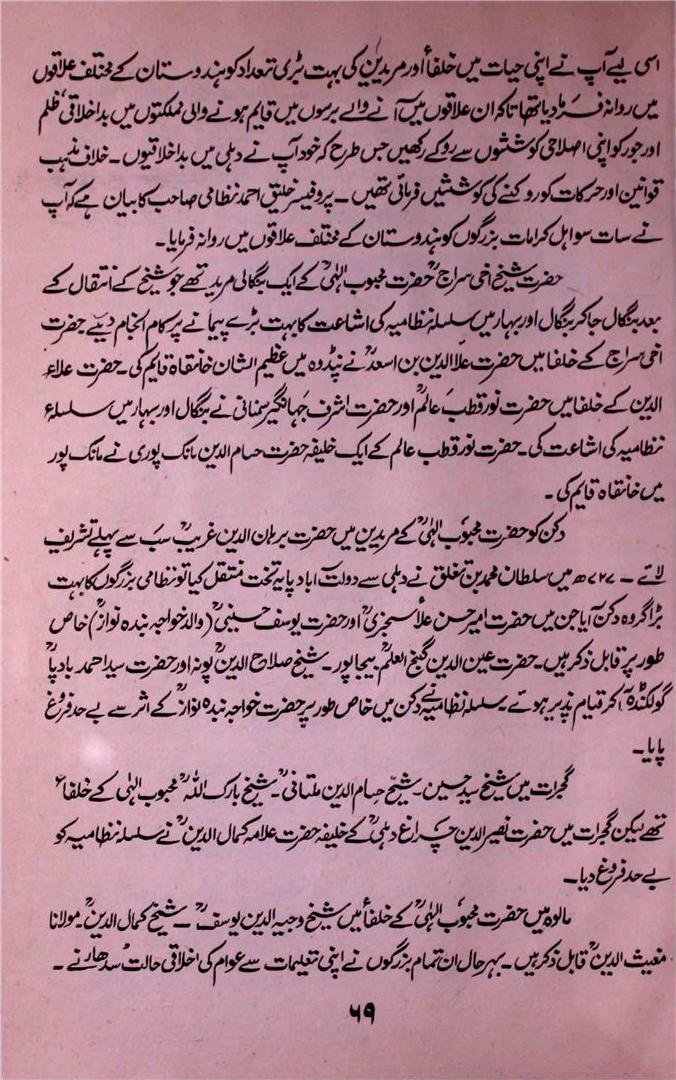 اسی لیے آپ نے اپنی حیات میں خلفاً اور مریدین کی بہت بڑی تعداد کو ہندوستان کے مختلف علاقوں
میں روانہ فرمادیا تھا تاکہ ان علاقوں میں آنے والے برسوں میں قایم ہونے والی مملکتوں میں بداخلاقی، ظلم
اور جور کو اپنی اصلاحی کوششوں سے روکے رکھیں جس طرح کہ خود آپ نے دہلی میں بداخلاقیوں۔ خلاف مذہب
قوانین اور حرکات کو روکنے کی کوششیں فرمائی تھیں۔ پروفیسر خلیق احمد نظامی صاحب کا بیان ہے کہ آپ
نے سات سو اہل کرامات بزرگوں کو ہندوستان کے مختلف علاقوں میں روانہ فرمایا۔
حضرت شیخ اخی سراجؒ حضرت محبوب الٰہیؒ کے ایک بنگالی مرید تھے جو شیخ کے انتقال کے
بعد بنگال جاکر بنگال اور بہار میں سلسلہ نظامیہ کی اشاعت کا بہت بڑے پیمانے پر کام انجام دیئے حضرت
اخی سراج کے خلفا میں حضرت علاؑالدین بن اسعدؒ نے پنڈوہ میں عظیم الشان خانقاہ قایم کی۔ حضرت علاء
الدین کے خلفا میں حضرت نور قطب عالمؒ اور حضرت اشرف جہانگیر سمنانی نے بنگال اور بہار میں سلسلۂ
نظامیہ کی اشاعت کی۔ حضرت نور قطب عالم کے ایک خلیفہ حضرت حسام الدین مانک پوری نے مانک پور
میں خانقاہ قایم کی۔
دکن کو حضرت محبوب الٰہیؒ کے مریدین میں حضرت برہان الدین غریبؒ سب سے پہلے تشریف
لائے۔ ۷۲۷ھ میں سلطان محمد بن تغلق نے دہلی سے دولت آباد پایہ تخت منتقل کیا تو نظامی بزرگوں کا بہت
بڑا گروہ دکن آیا جن میں حضرت امیر حسن علاؑ سجزیؒ اور حضرت یوسف حسینیؒ (والد خواجہ بندہ نوازؒ) خاص
طور پر قابل ذکر ہیں۔ حضرت عین الدین گنج العلمؒ بیجاپور۔ شیخ صلاح الدینؒ پونہ اور حضرت سید احمد بادپاؒ
گولکنڈہ آکر قیام پذیر ہوئے۔ سلسلہ نظامیہ نے دکن میں خاص طور پر حضرت خواجہ بندہ نوازؒ کے اثر سے بے حد فروغ
پایا۔
گجرات میں شیخ سید حسین۔ شیخ حسام الدین ملتانیؒ۔ شیخ بارک اللہؒ محبوب الٰہی کے خلفاء
تھے لیکن گجرات میں حضرت نصیر الدین چراغ دہلیؒ کے خلیفہ حضرت علامہ کمال الدینؒ نے سلسلہ نظامیہ کو
بے حد فروغ دیا۔
مالوہ میں حضرت محبوب الٰہیؒ کے خلفاً میں شیخ وجیہ الدین یوسفؒ۔ شیخ کمال الدینؒ۔ مولانا
مغیث الدینؒ قابل ذکر ہیں۔ بہر حال ان تمام بزرگوں نے اپنی تعلیمات سے عوام کی اخلاقی حالت سدھارنے۔
۶۹